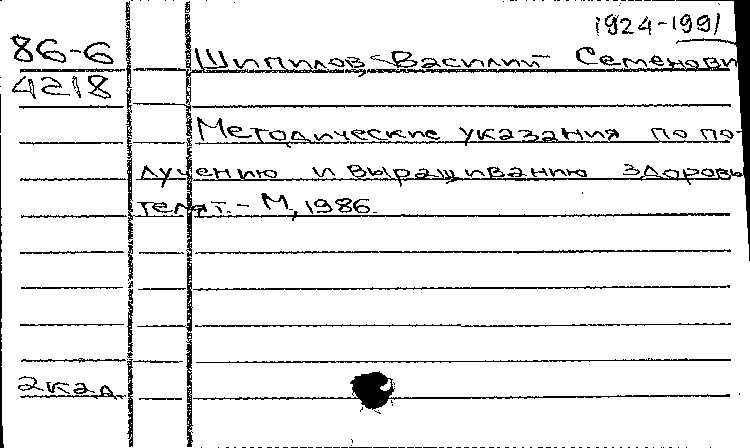 1924-1991
86-6 Шипилов, Василий Семенови
4218
Методические указания по по-
лучению и выращиванию здоровы
телят. - М., 1986.
2кад